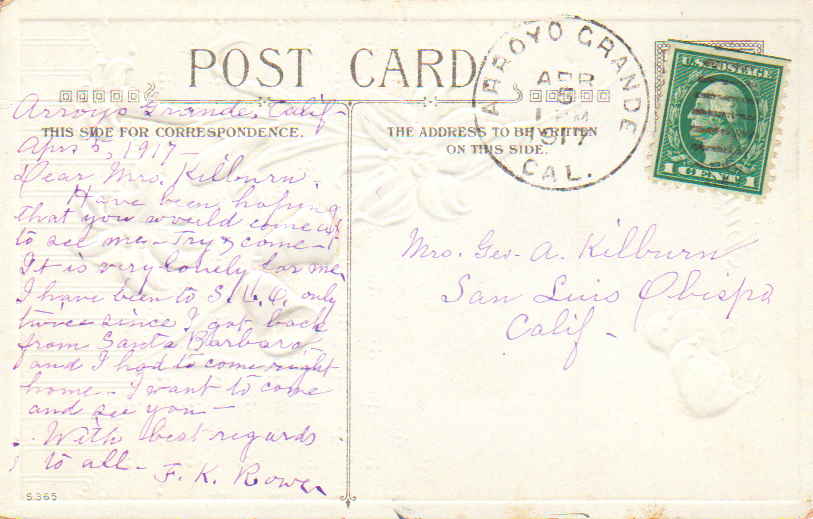 POST CARD
THIS SIDE FOR CORRESPONDENCE.
THE ADDRESS TO BE WRITTEN
ON THIS SIDE.
ARROYO GRANDE
APR
5
PM
1917
CAL.
U.S. POSTAGE
1 CENT 1
Arroyo Grande, Calif-
Apr 5, 1917-
Dear Mrs. Kilburn.
Have been hoping
that you would come
to see me- Try & come-
It is very lonely for me
I have been to S.L.O. only
twice since I got back
from Santa Barbara-
and I had to come right
home- I want to come
and see you-
With best regards
to all-
F. K. Rowe
Mrs. Geo. A. Kilburn
San Luis Obispo
Calif-
S365